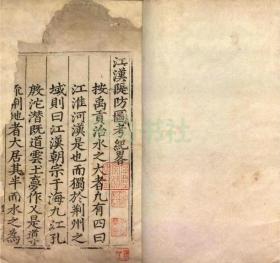 江漢隄防圖考紀畧
按禹貢治水之大者九有四曰
江淮河漢是也而獨於荆州之
域則曰江漢朝宗于海九江孔
殷沱潜既道雲土夢作乂是
地者大居其半而水之為